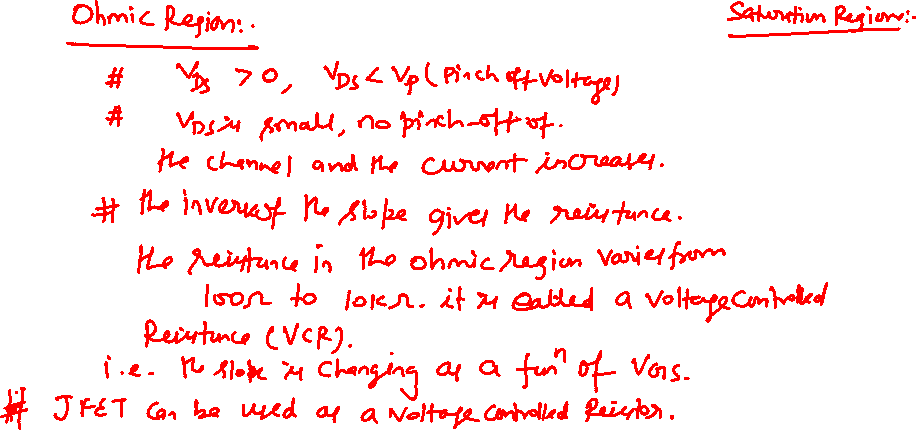 Ohmic Region:.
Saturation Region:-
# VDS > 0, VDS < Vp (Pinch off Voltage)
# VDS is small, no pinch-off of.
the channel and the current increases.
# the inverse of the slope gives the resistance.
the resistance in the ohmic region varies from
100Ω to 10KΩ. it is called a Voltage Controlled
Resistance (VCR).
i.e. the slope is changing as a funⁿ of VGS.
# JFET can be used as a Voltage Controlled Resistor.